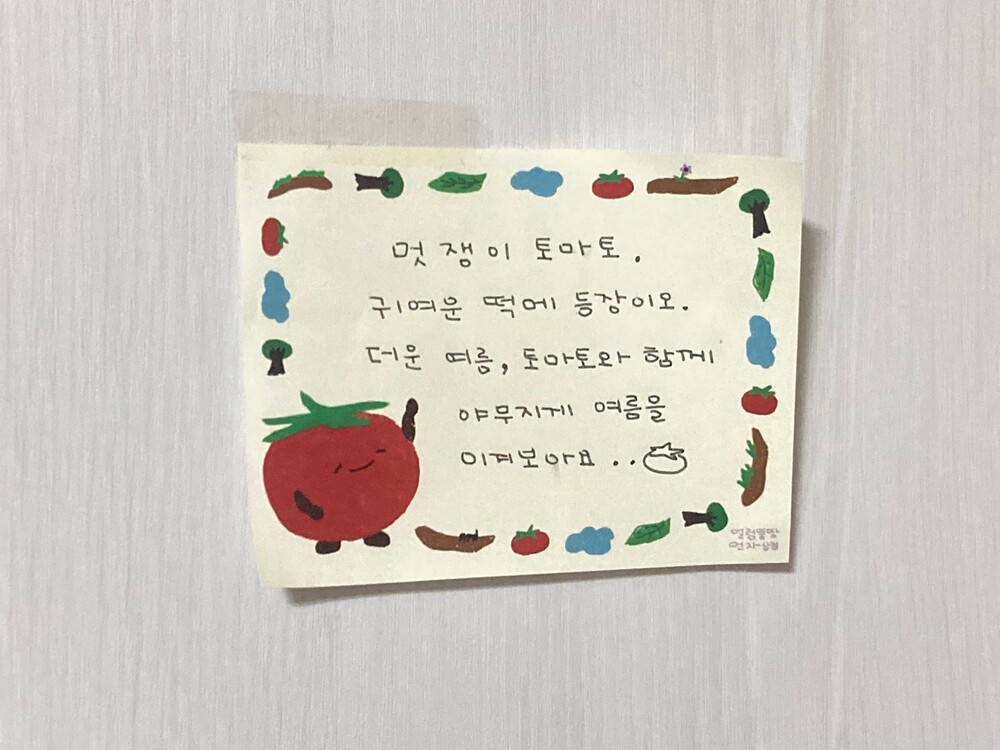 멋쟁이 토마토.
귀여운 떡메 등장이오.
더운 여름, 토마토와 함께
야무지게 여름을
이겨보아요..